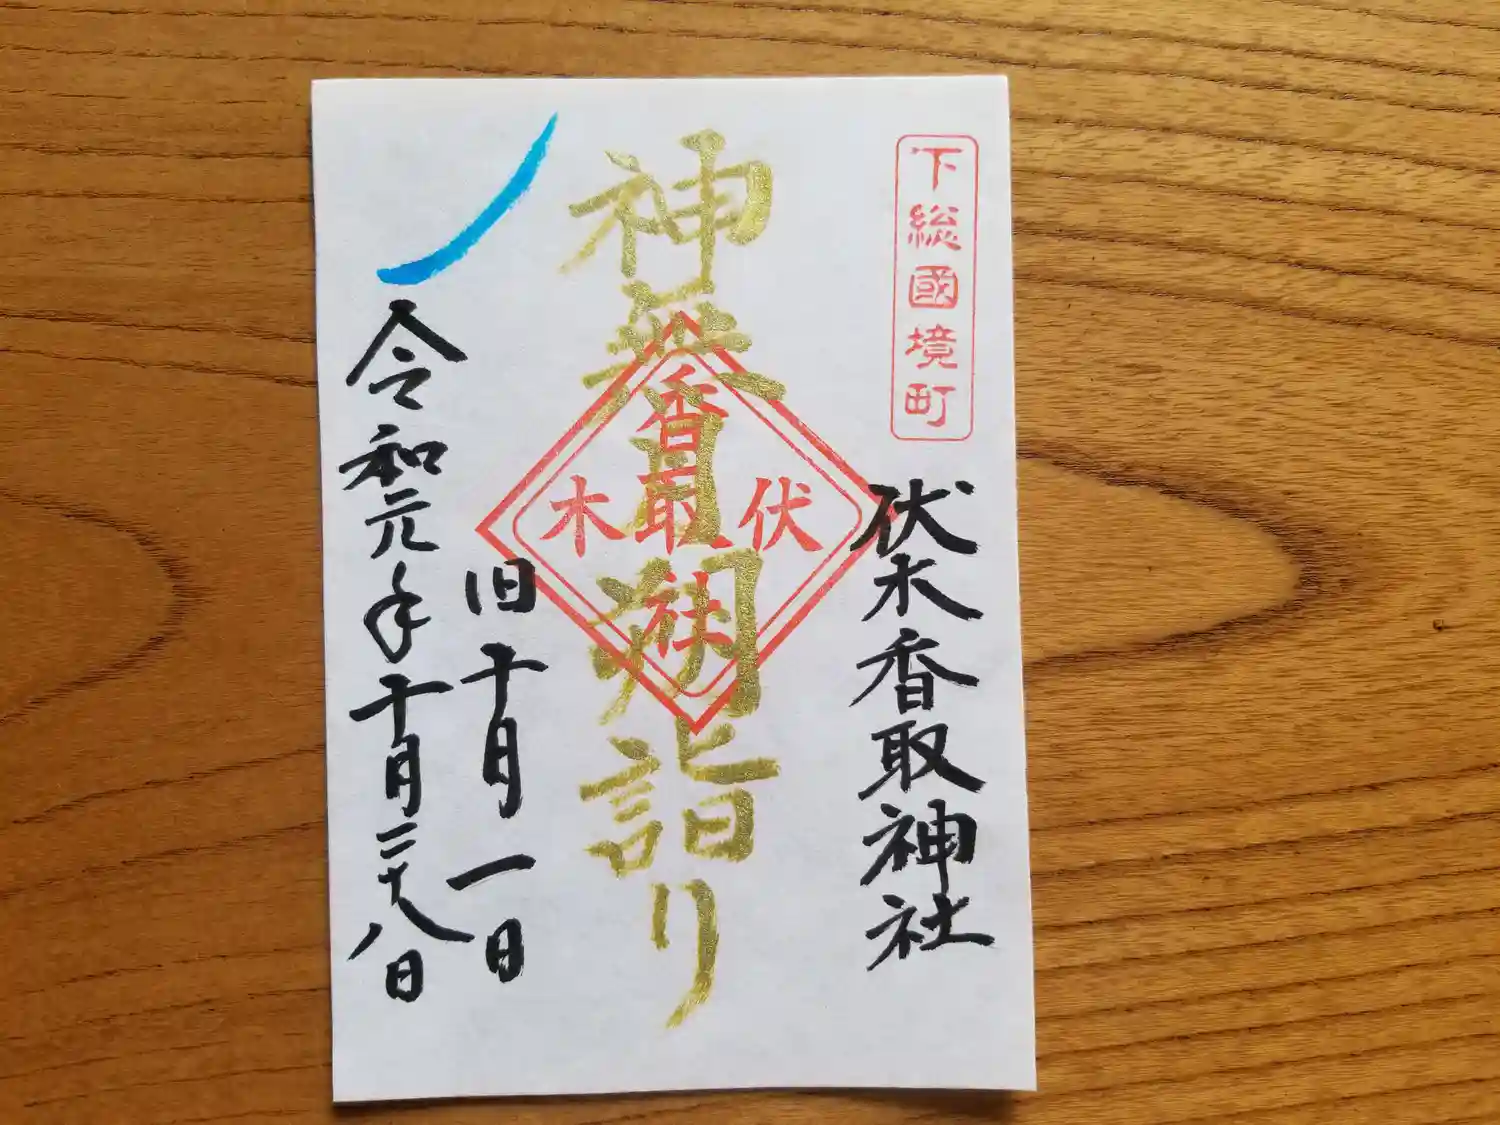 下総國境町
伏木香取神社
神無月朔詣り
伏木
香取社
旧十月一日
令和元年十月二十八日